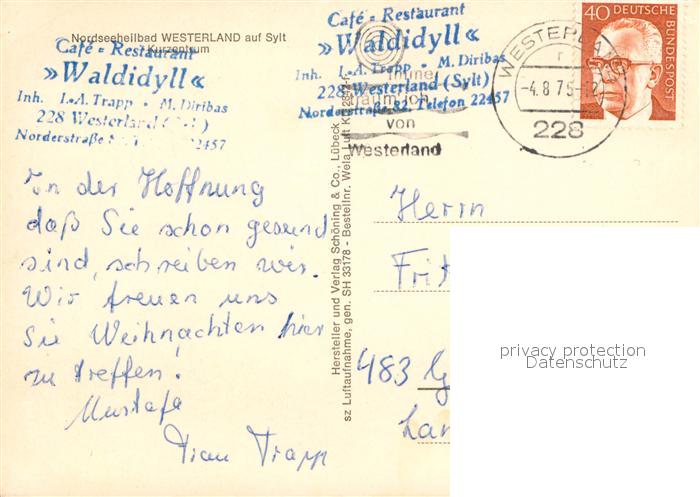 Nordseeheilbad WESTERLAND auf Sylt
Kurzentrum
Café = Restaurant
»Waldidyll«
Inh. I.-A. Trapp • M. Diribas
228 Westerland
Norderstraße 22457
Café = Restaurant
»Waldidyll«
Inh. I.-A. Trapp • M. Diribas
228 Westerland (Sylt)
Norderstraße 82, Telefon 22457
von
Westerland
WESTERLAND
-4.8.75-
228
40 DEUTSCHE BUNDESPOST
In der Hoffnung
daß Sie schon gesund
sind, schreiben wir.
Wir freuen uns
Sie Weihnachten hier
zu treffen!
Mustafa
Frau Trapp
Hersteller und Verlag Schöning & Co., Lübeck
sz Luftaufnahme, gen. SH 33178 - Bestellnr. Wela Luft
Herrn
Frit
483 G
Lan
privacy protection
Datenschutz